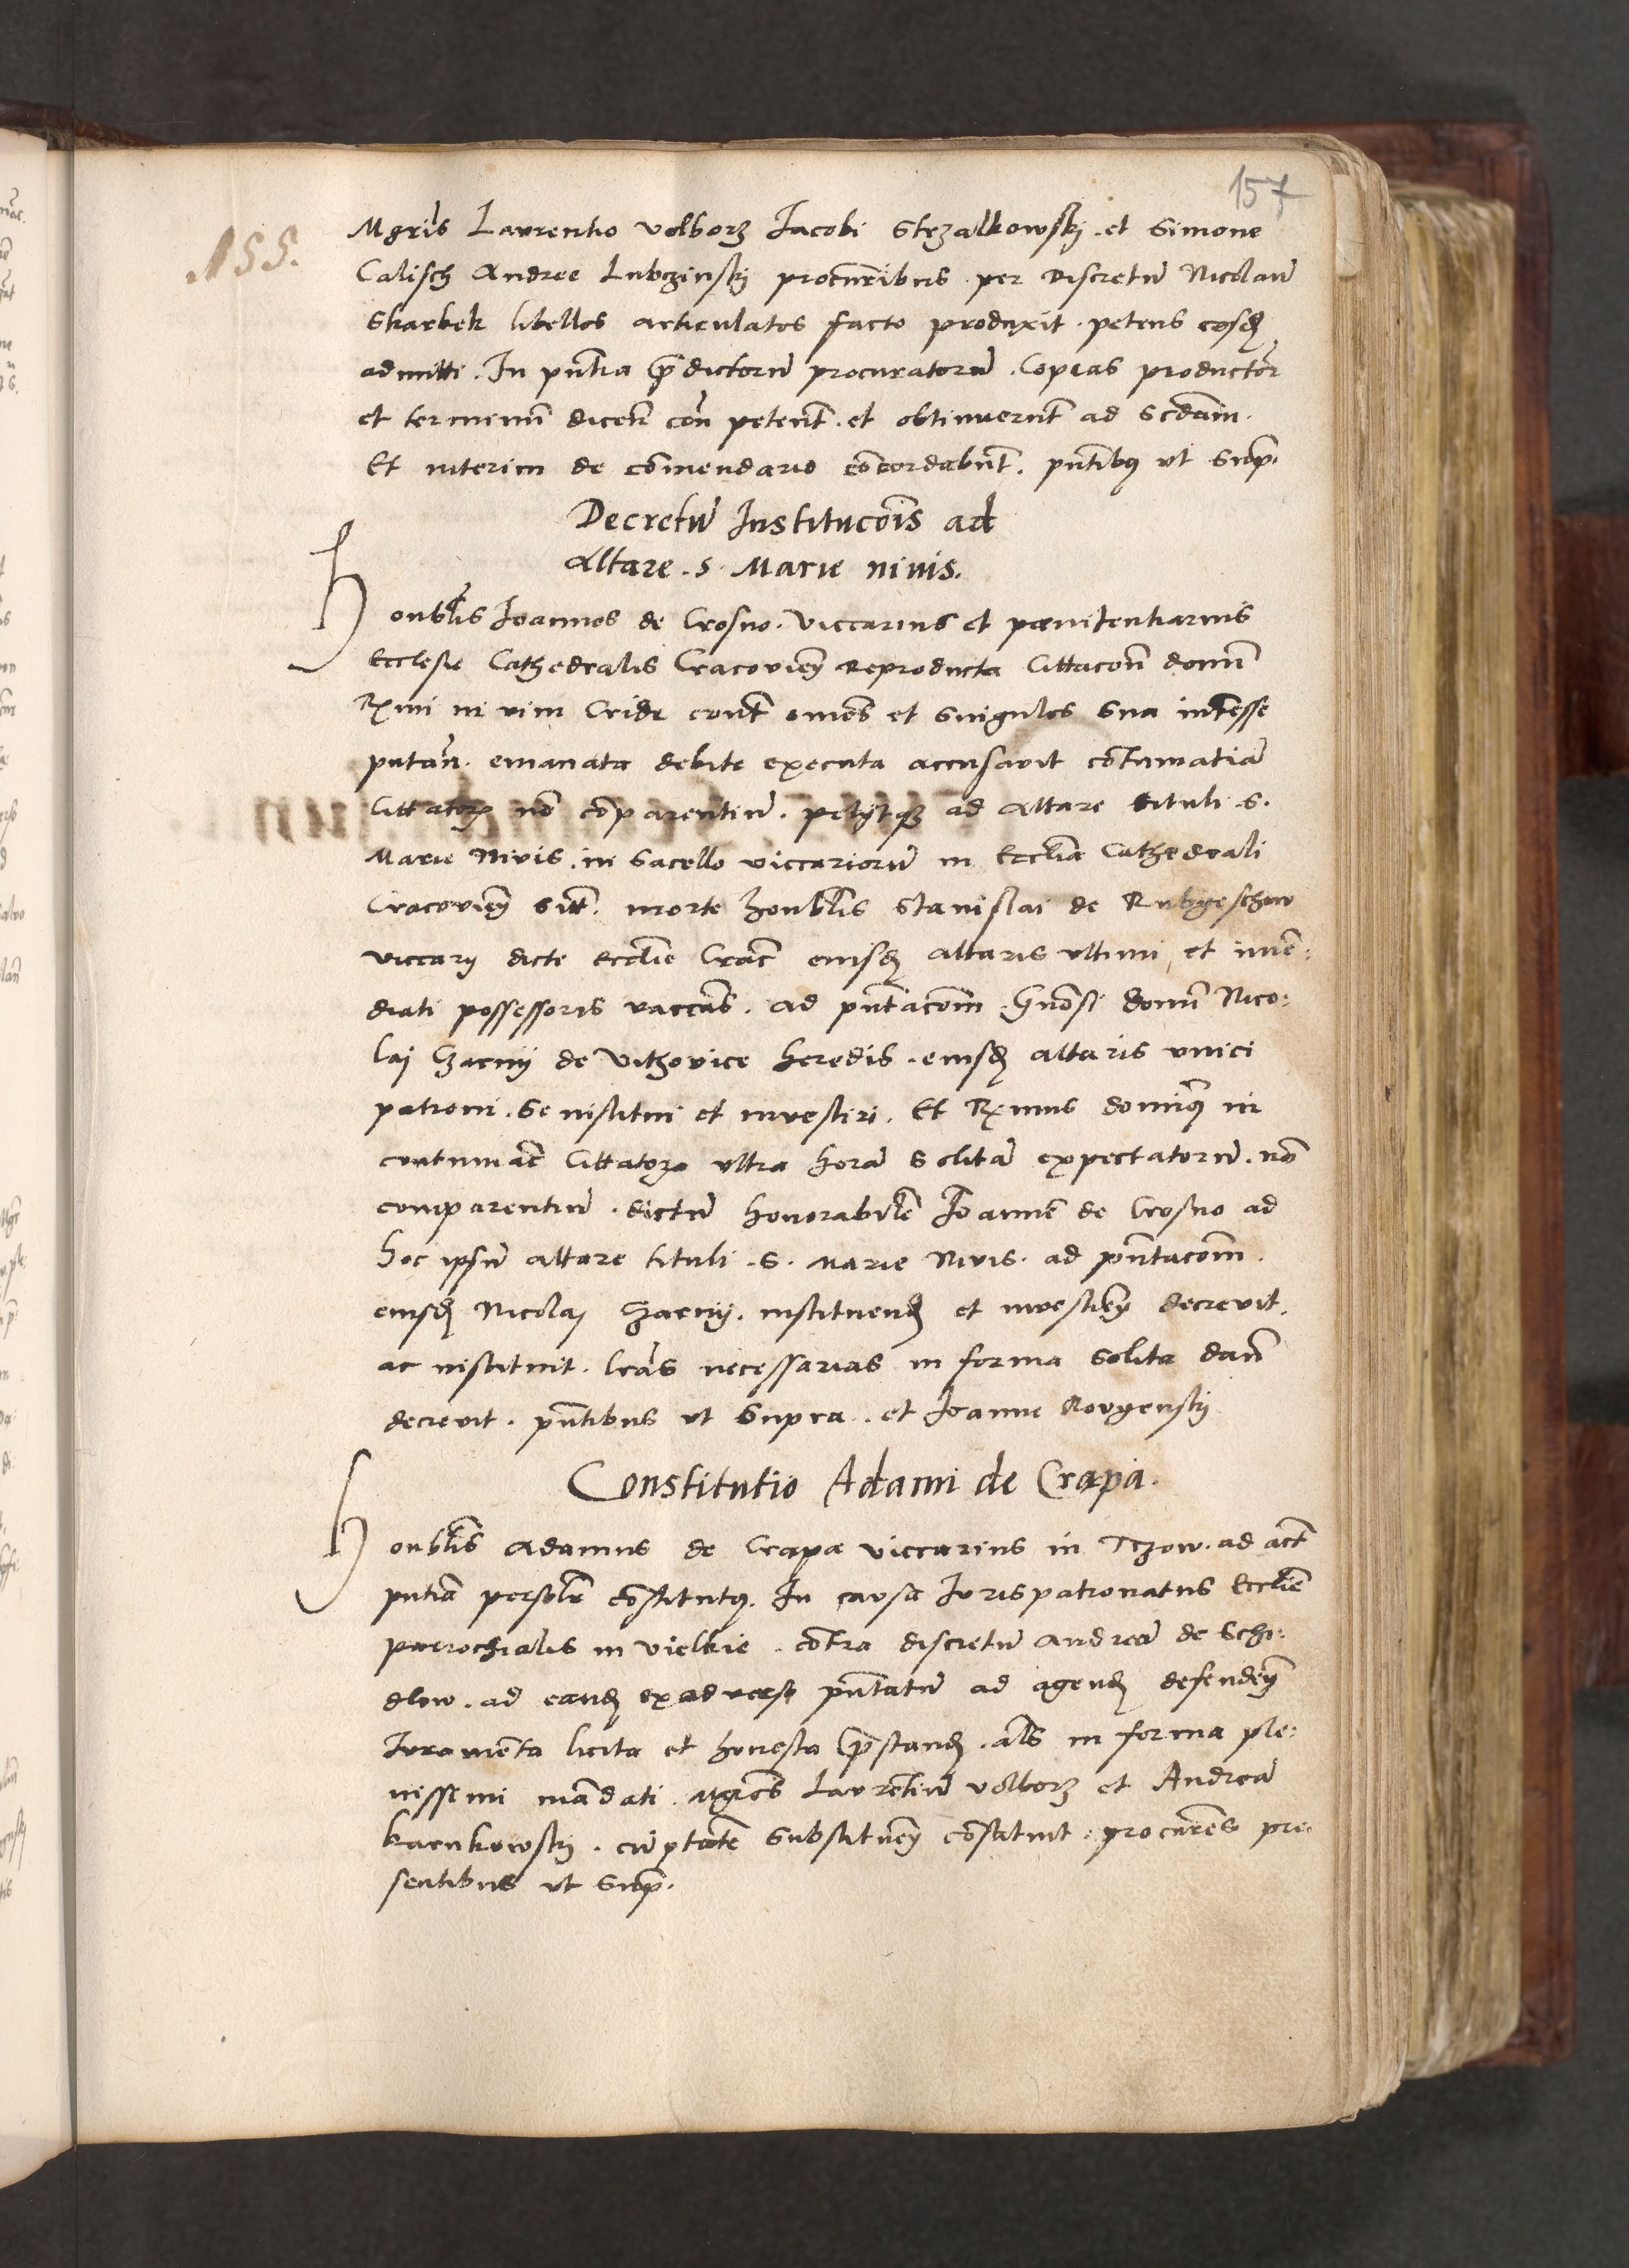 157
155.
Mgris Laurentio Volborz Jacobi Strzalkowskj . et Simone
Calisch Andree Lubczinskj procuribus . per Discretu Nicolau
Skarbek libellos articulatos facto produxit . petens eosd
admitti . In pntia predictoru procuratoru . Copias productor
et terminu dicen con petent . et obtinuerut ad scdam .
Et interim de comendario cocordabut . pntibus ut sup.
Decretu Institucois ad
Altare . S . Marie nivis .
Honblis Joannes de Crosno . Viccarius et poenitentiarius
Ecclesie Cathedralis Cracovien Reproducta Cittacon domi
Rximi in vim Cride cont omes et singulos sua interesse
putan . emanata debite executa accusavit contumatia
Cittator no comparentiu . petijtq ad Altare tituli . S .
Marie Nivis . in Sacello viccarioru in Ecclia Cathedrali
Cracovien sitt . morte honblis Stanislai de
viccarij dicte Ecclie Crac eiusd altaris ultimi et ime:
diati possessoris vaccans . ad pntacom Gnosi domi Nico:
laj Czarnij de Vithovice heredis . eiusd altaris unici
patroni . se institui et investiri . Et Rximus dominus in
contumac Cittator ultra hora solita expectatoru . no
comparentiu . dictu honorabile Joanne de Crosno ad
hoc ipsu altare tituli . S . Marie Nivis . ad pntacom .
eiusd Nicolaj Czarnij . instituend et investien decrevit .
ac instituit . lras necessarias in forma solita dan
decrevit . pntibus ut supra . et Joanne
Constitutio Adami de Crapa .
Honblis Adamus de Crapa viccarius in Tczow . ad act
pntia persolr costitutus . In causa Jurispatronatus Ecclie
parrochialis in Vielkie . contra discretu Andrea de Sche:
dlow . ad eand ex adverso pntatu ad agend defenden
Juramenta licita et honesta prestand . als in forma ple:
nissimi mandati . Mgros Laurentiu Volborz et Andrea
Karnkowskj . cu ptate substituen costituit . procures pre:
sentibus ut sup .